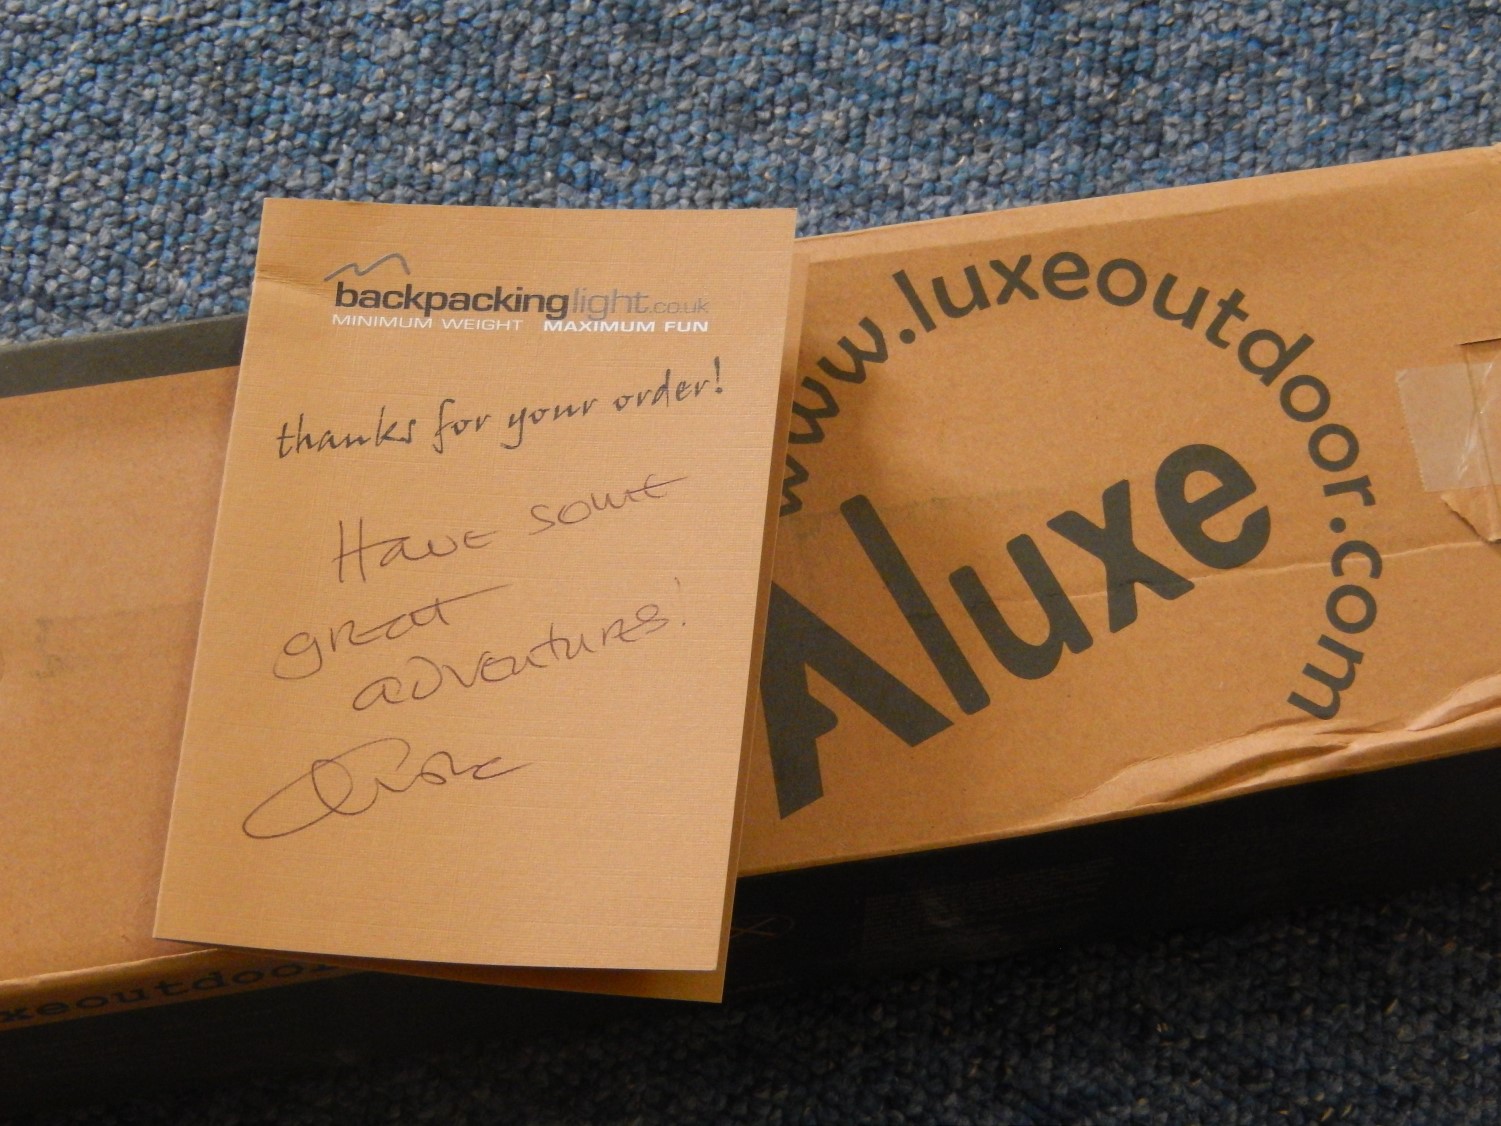 backpackinglight.co.uk
MINIMUM WEIGHT MAXIMUM FUN
thanks for your order!
Have some
great
adventures!
www.luxeoutdoor.com
luxe
xeoutdoor